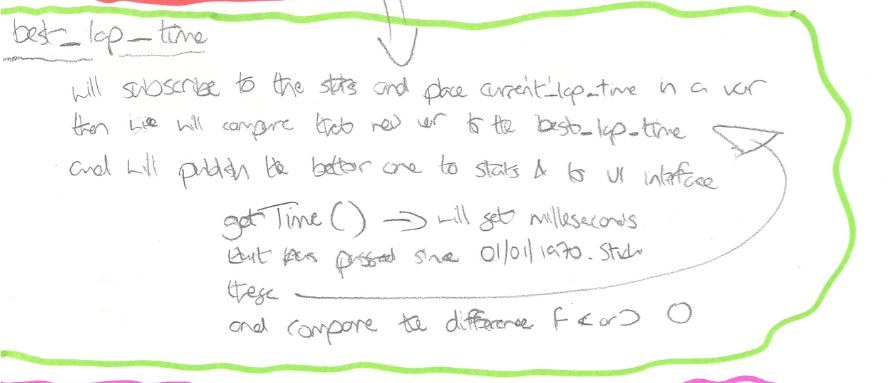 best_lap_time
will subscribe to the stats and place current_lap_time in a var
then we will compare that new var to the best_lap_time
and will publish the better one to stats & to UI interface
getTime() → will get milleseconds
that has passed since 01/01/1970. Stick
these
and compare the difference if < or > 0